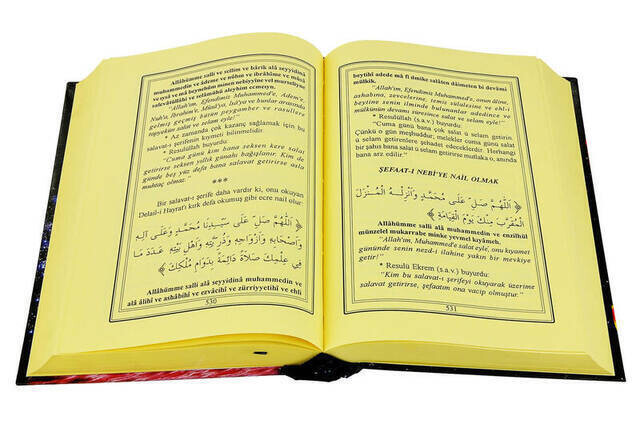 Allâhümme salli ve sellim ve bârik alâ seyyidinâ
muhammedin ve âdeme ve nûhın ve ibrâhîme ve mûsâ
ve iysâ ve mâ beynehüm minen nebiyyîne vel mürseliyne
salevâtüllâhi ve selâmühû aleyhim ecmeıyn.
"Allah'ım, Efendimiz Muhammed'e, Adem'e,
Nuh'a, İbrahim'e, Mûsâ'ya, İsâ'ya ve bunlar arasında
gelmiş geçmiş bütün peygamber ve rasullere
salat ve selam eyle!"
* Az zamanda çok kazanç sağlamak için bu
salavat-ı şerifenin kıymeti bilinmelidir.
* Resulüllah (s.a.v.) buyurdu:
"Cuma günü bana seksen kere salat
getirirse seksen yıllık günahı bağışlanır. Kim de
günde beş yüz defa bana salavat getirirse asla
muhtaç olmaz."
***
Bir salavat-ı şerife daha vardır ki, onu okuyan
Delail-i Hayrat'ı kırk defa okumuş gibi ecre nail olur:
﴿ اَللّٰهُمَّ صَلِّ عَلٰى سَيِّدِنَا مُحَمَّدٍ وَعَلٰى اٰلِهِ
وَاَصْحَابِهِ وَاَزْوَاجِهِ وَذُرِّيَّتِهِ وَاَهْلِ بَيْتِهِ عَدَدَ مَا
فِي عِلْمِكَ صَلَاةً دَائِمَةً بِدَوَامِ مُلْكِكَ ﴾
Allâhümme salli alâ seyyidinâ muhammedin ve
alâ âlihî ve ashâbihî ve ezvâcihî ve zürriyyetihî ve ehli
530
beytihî adede mâ fî ılmike salâten dâimeten bi devâmi
mülkik.
"Allah'ım, Efendimiz Muhammed'e, onun âline,
ashabına, zevcelerine, temiz sülalesine ve ehl-i
beytine senin ilminde bulunanlar adedince ve
mülkün devam ettikçe salat ve selam eyle!"
* Resulüllah (s.a.v.) buyurdu:
"Cuma günü bana çok salat ü selam getirin.
Çünkü o gün meşhuddur, melekler çokça salat
ü selam getirenlere şehadet edeceklerdir. Herhangi
bir şahıs bana salat ü selam getirirse mutlaka o, anında
bana arz edilir."
ŞEFAAT-I NEBİ'YE NAİL OLMAK
﴿ اَللّٰهُمَّ صَلِّ عَلٰى مُحَمَّدٍ وَاَنْزِلْهُ الْمُنْزَلَ
الْمُقَرَّبَ مِنْكَ يَوْمَ الْقِيَامَةِ ﴾
Allâhümme salli alâ muhammedin ve enzilhül
münzelel mukarrabe minke yevmel kıyâmeh.
"Allah'ım, Muhammed'e salat eyle, onu kıyamet
gününde senin nezd-i ilahine yakin bir mevkiye
getir!"
* Resulü Ekrem (s.a.v.) buyurdu:
"Kim bu salavat-ı şerifeyi okuyarak üzerime
salavat getirirse, şefaatım ona vacip olmuştur."
531